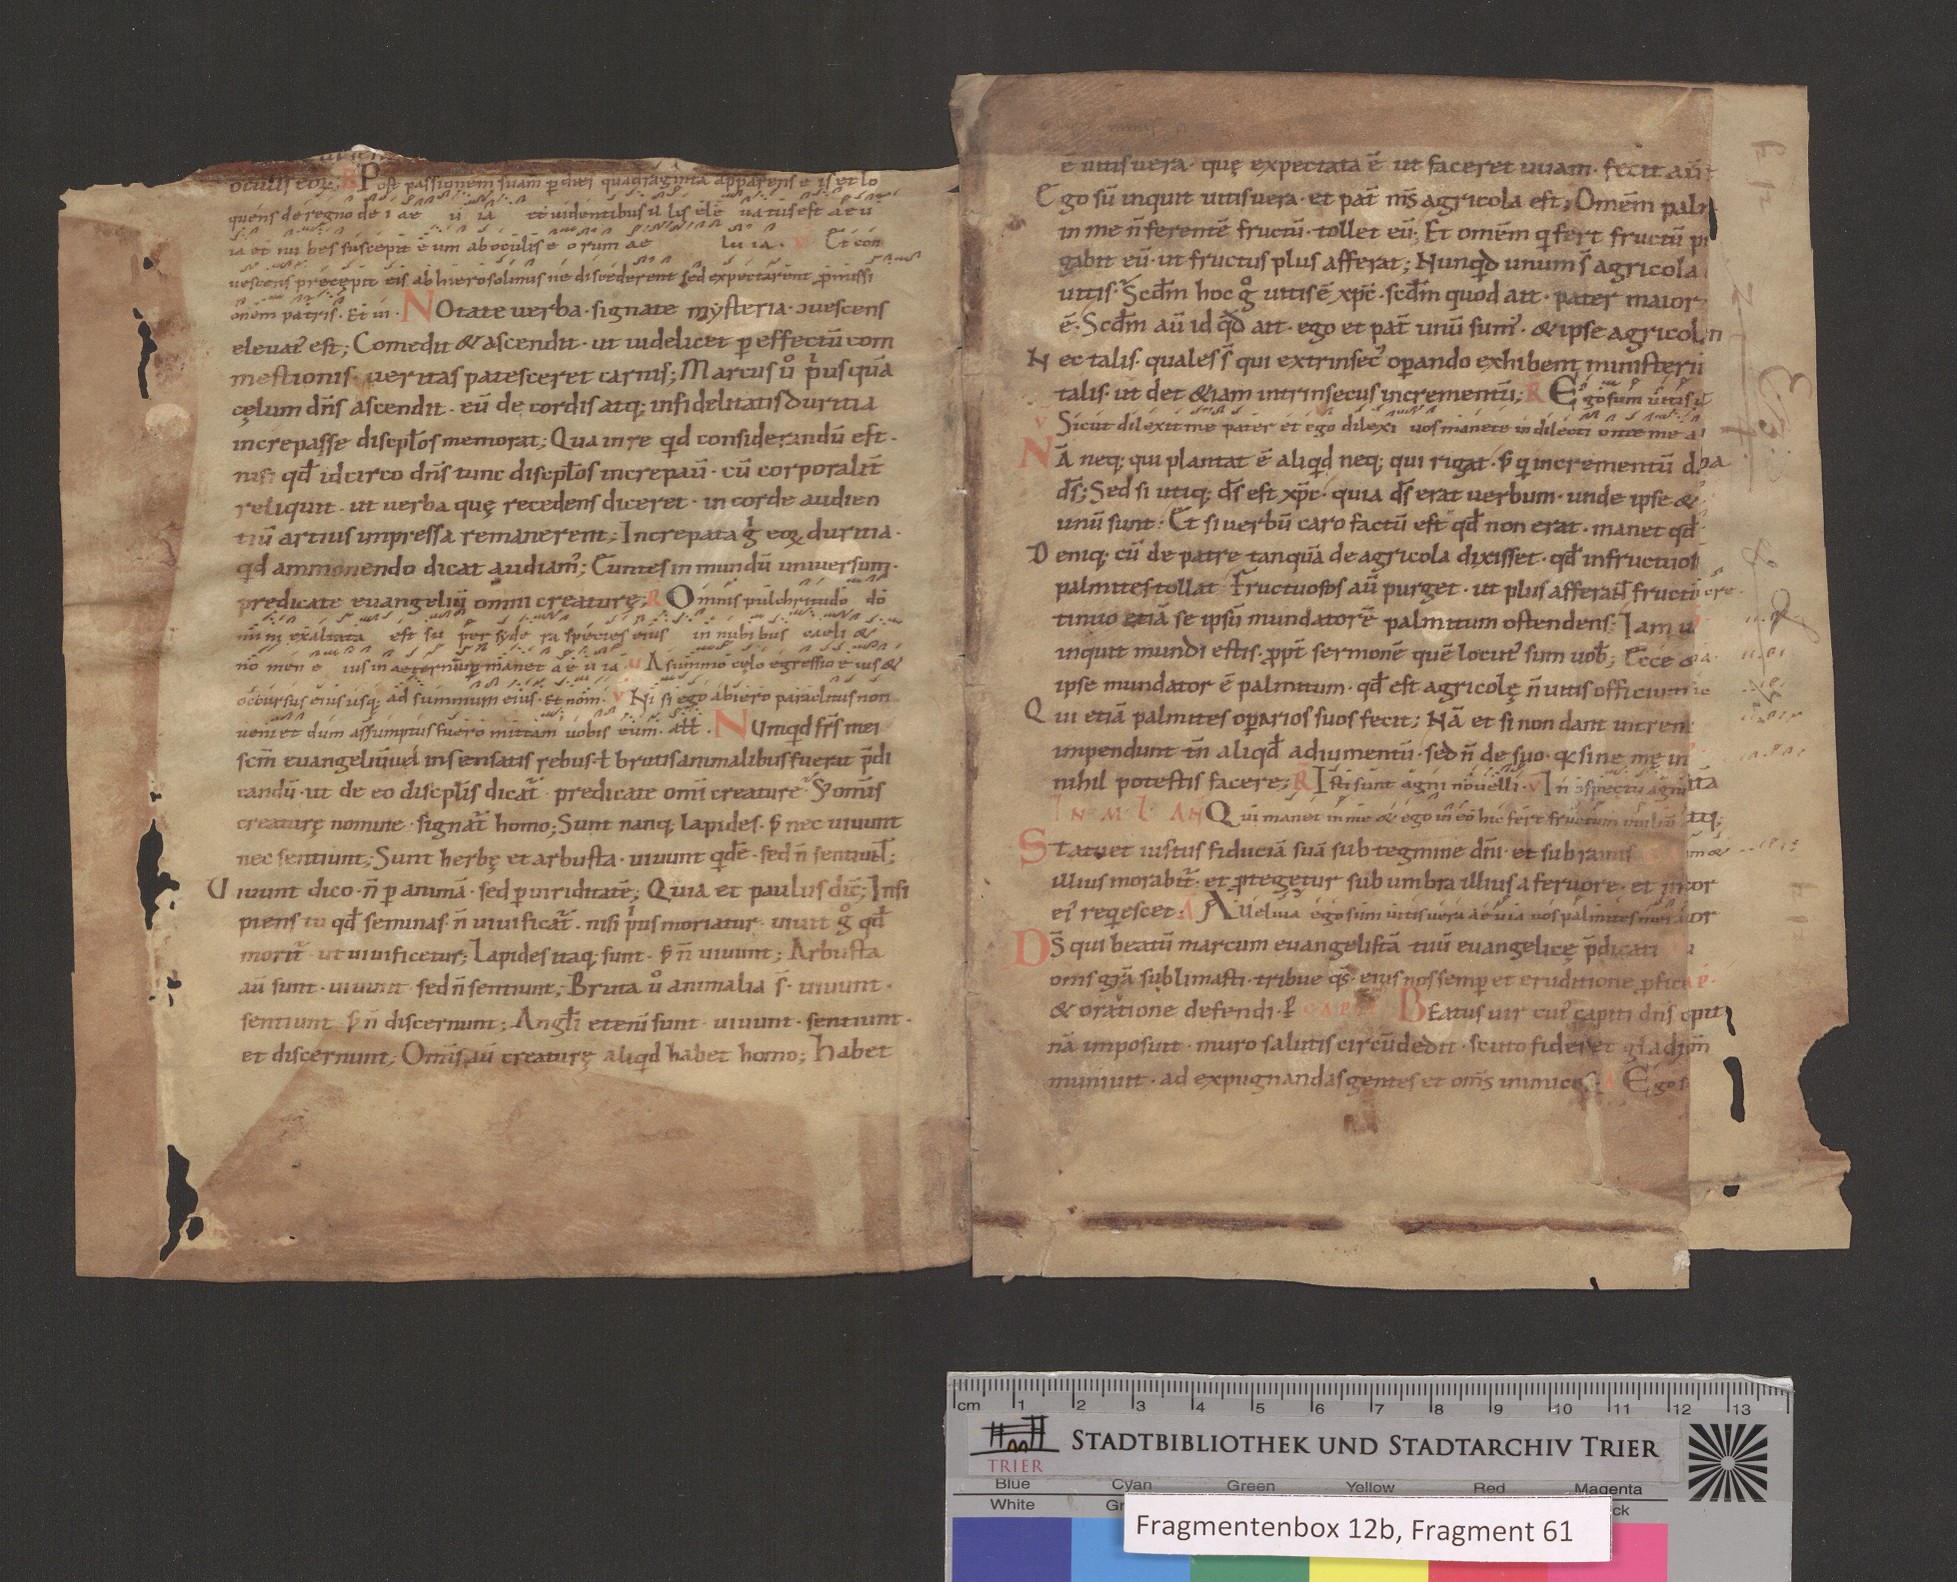 oculis eoꝝ. R Post passionem suam ꝑ dies quadraginta apparens eis et lo
quens de regno de i ae u ia et uidentibus il lis ele uatus est ae u
ia et nu bes suscepit e um ab oculis e orum ae lu ia. V Et con
uescens precepit eis ab hierosolimis ne discederent sed expectarent ꝓmissi
onem patris. Et ui. NOtate uerba· signate mysteria· ɔuescens
eleuat᷒ est; Comedit & ascendit· ut uidelicet ꝑ effectū com
mestionis ueritas patesceret carnis; Marcus ů p̍usquā
cęlum dn̄s ascendit· eū de cordis atq; infidelitatis duritia
increpasse discipl̄os memorat; Qua in re qd considerandū est·
nisi qd̄ idcirco dn̄s tunc discipl̄os increpau̅· cū corporalit̄
reliquit· ut uerba quę recedens diceret· in corde audien
tiū artius impressa remanerent; Increpata g̍ eoꝝ duritia·
qd ammonendo dicat audiam᷒; Euntes in mundū uniuersum·
predicate euangeliū omni creaturę; R Omnis pulchritudo do
mini exaltata est su per syde ra species eius in nubibus caeli &
no men e ius in aeternum ꝑmanet ae u ia V A summo cęlo egressio e ius &
occursus eius usq; ad summum eius· Et nom̄. V Ni si ego abiero paraclitus non
ueniet dum assumptus fuero mittam uobis eum· all̄. NUmqd fr̄s mei
scm̄ euangeliū uel insensatis rebus· ł brutis animalibus fuerat p̄di
candū· ut de eo discipl̄is dicat᷒· predicate omi creature· S; om̄is
creaturę nomine· signat᷒ homo; Sunt nanq; lapides· s; nec uiuunt
nec sentiunt; Sunt herbę et arbusta· uiuunt qdē· sed n̄ sentiunt;
Uiuunt dico· n̄ ꝑ animā· sed ꝑ uiriditatē; Quia et paulus dic̄; Insi
piens tu qd̄ seminas· n̄ uiuificat᷒· nisi p̍us moriatur· uiuit g̊ qd̄
morit᷒· ut uiuificetur; Lapides itaq; sunt· s; n̄ uiuunt; Arbusta
aū sunt· uiuunt· sed n̄ sentiunt; Bruta ů animalia s̄· uiuunt·
sentiunt s; n̄ discernunt; Angl̄i eteni sunt· uiuunt· sentiunt·
et discernunt; Om̄is aū creaturę aliqd habet homo; habet
ē uitis uera· quę expectata ē ut faceret uuam· fecit aū
Ego sū inquit uitis uera· et pat̄ m̄s agricola est; Omēm palm
in me n̄ ferentē fructū· tollet eū; Et omēm q fert fructū pu
gabit eū· ut fructus plus afferat; Nunqd unum s̄ agricola
uitis· Scd̄m hoc g̊ uitis ē xp̄c· scd̄m quod ait· pater maior
ē· Scd̄m aū id qd̄ ait· ego et pat̄ unū sum᷒· & ipse agricola
Nec talis· quales s̄ qui extrinsec᷒ oꝑando exhibent ministeriū
talis· ut det &iam intrinsecus incrementū; R Ego sum uitis u
V Sicut dilexit me pater et ego dilexi uos manete in dilecti one me a
NĀ neq; qui plantat ē aliqd neq; qui rigat· s; q incrementū d
d̄s; Sed si utiq; d̄s est xp̄c· quia d̄s erat uerbum· unde ipse &
unū sunt· Et si uerbū caro factū est qd̄ non erat· manet qd̄
Deniq; cū de patre tanquā de agricola dixisset· qd̄ infructuo
palmites tollat· fructuosos aū purget· ut plus afferant fructū
tinuo etiā se ipsū mundatorē palmitum ostendens; Iam u
inquit mundi estis· ꝓpt̄ sermonē quē locut᷒ sum uob̄; Ecce
ipse mundator ē palmitum· qd̄ est agricolę n̄ uitis officium
Qui etiā palmites oꝑarios suos fecit; Nā et si non dant increm
impendunt tn̄ aliqd̄ adiumentū· sed n̄ de suo· qa sine me
nihil potestis facere; R Isti sunt agni nouelli· V In ɔspectu agni
IN M L AN Qui manet in me & ego in eo hic fert fructum multū
Statuet iustus fiduciā suā sub tegmine dn̄i· et sub ramis
illius morabit᷒· et ꝓtegetur sub umbra illius a feruore· et in
ei᷒ reqescet· A Alleluia ego sum uitis uera ae u ia uos palmites
DS̄ qui beatū marcum euangelistā tuū euangelicę p̄dicati
onis gr̄a sublimasti· tribue qs̄· eius nos semꝑ et eruditione ꝓfic
& oratione defendi· ꝑ CAPIT BEatus uir cui᷒ capiti dn̄s
nā imposuit· muro salutis circūdedit· scuto fidei et gladio
muniuit· ad expugnandas gentes et om̄s inimicos· A Ego s
cm 1 2 3 4 5 6 7 8 9 10 11 12 13
TRIER
STADTBIBLIOTHEK UND STADTARCHIV TRIER
Blue Cyan Green Yellow Red Magenta
White
Fragmentenbox 12b, Fragment 61